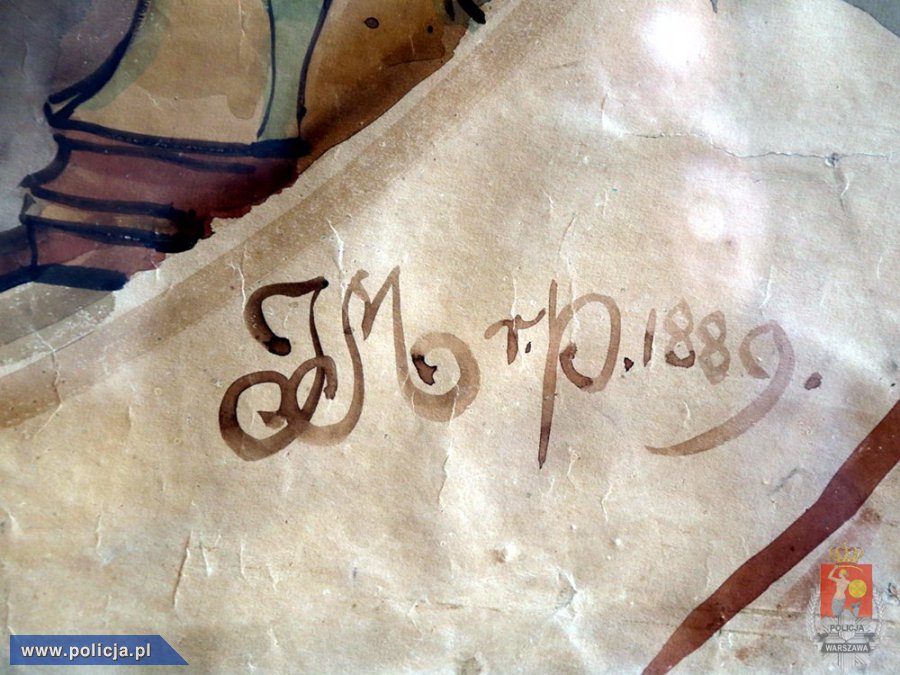 JM r.p.1889.
www.policja.pl
POLICJA
WARSZAWA